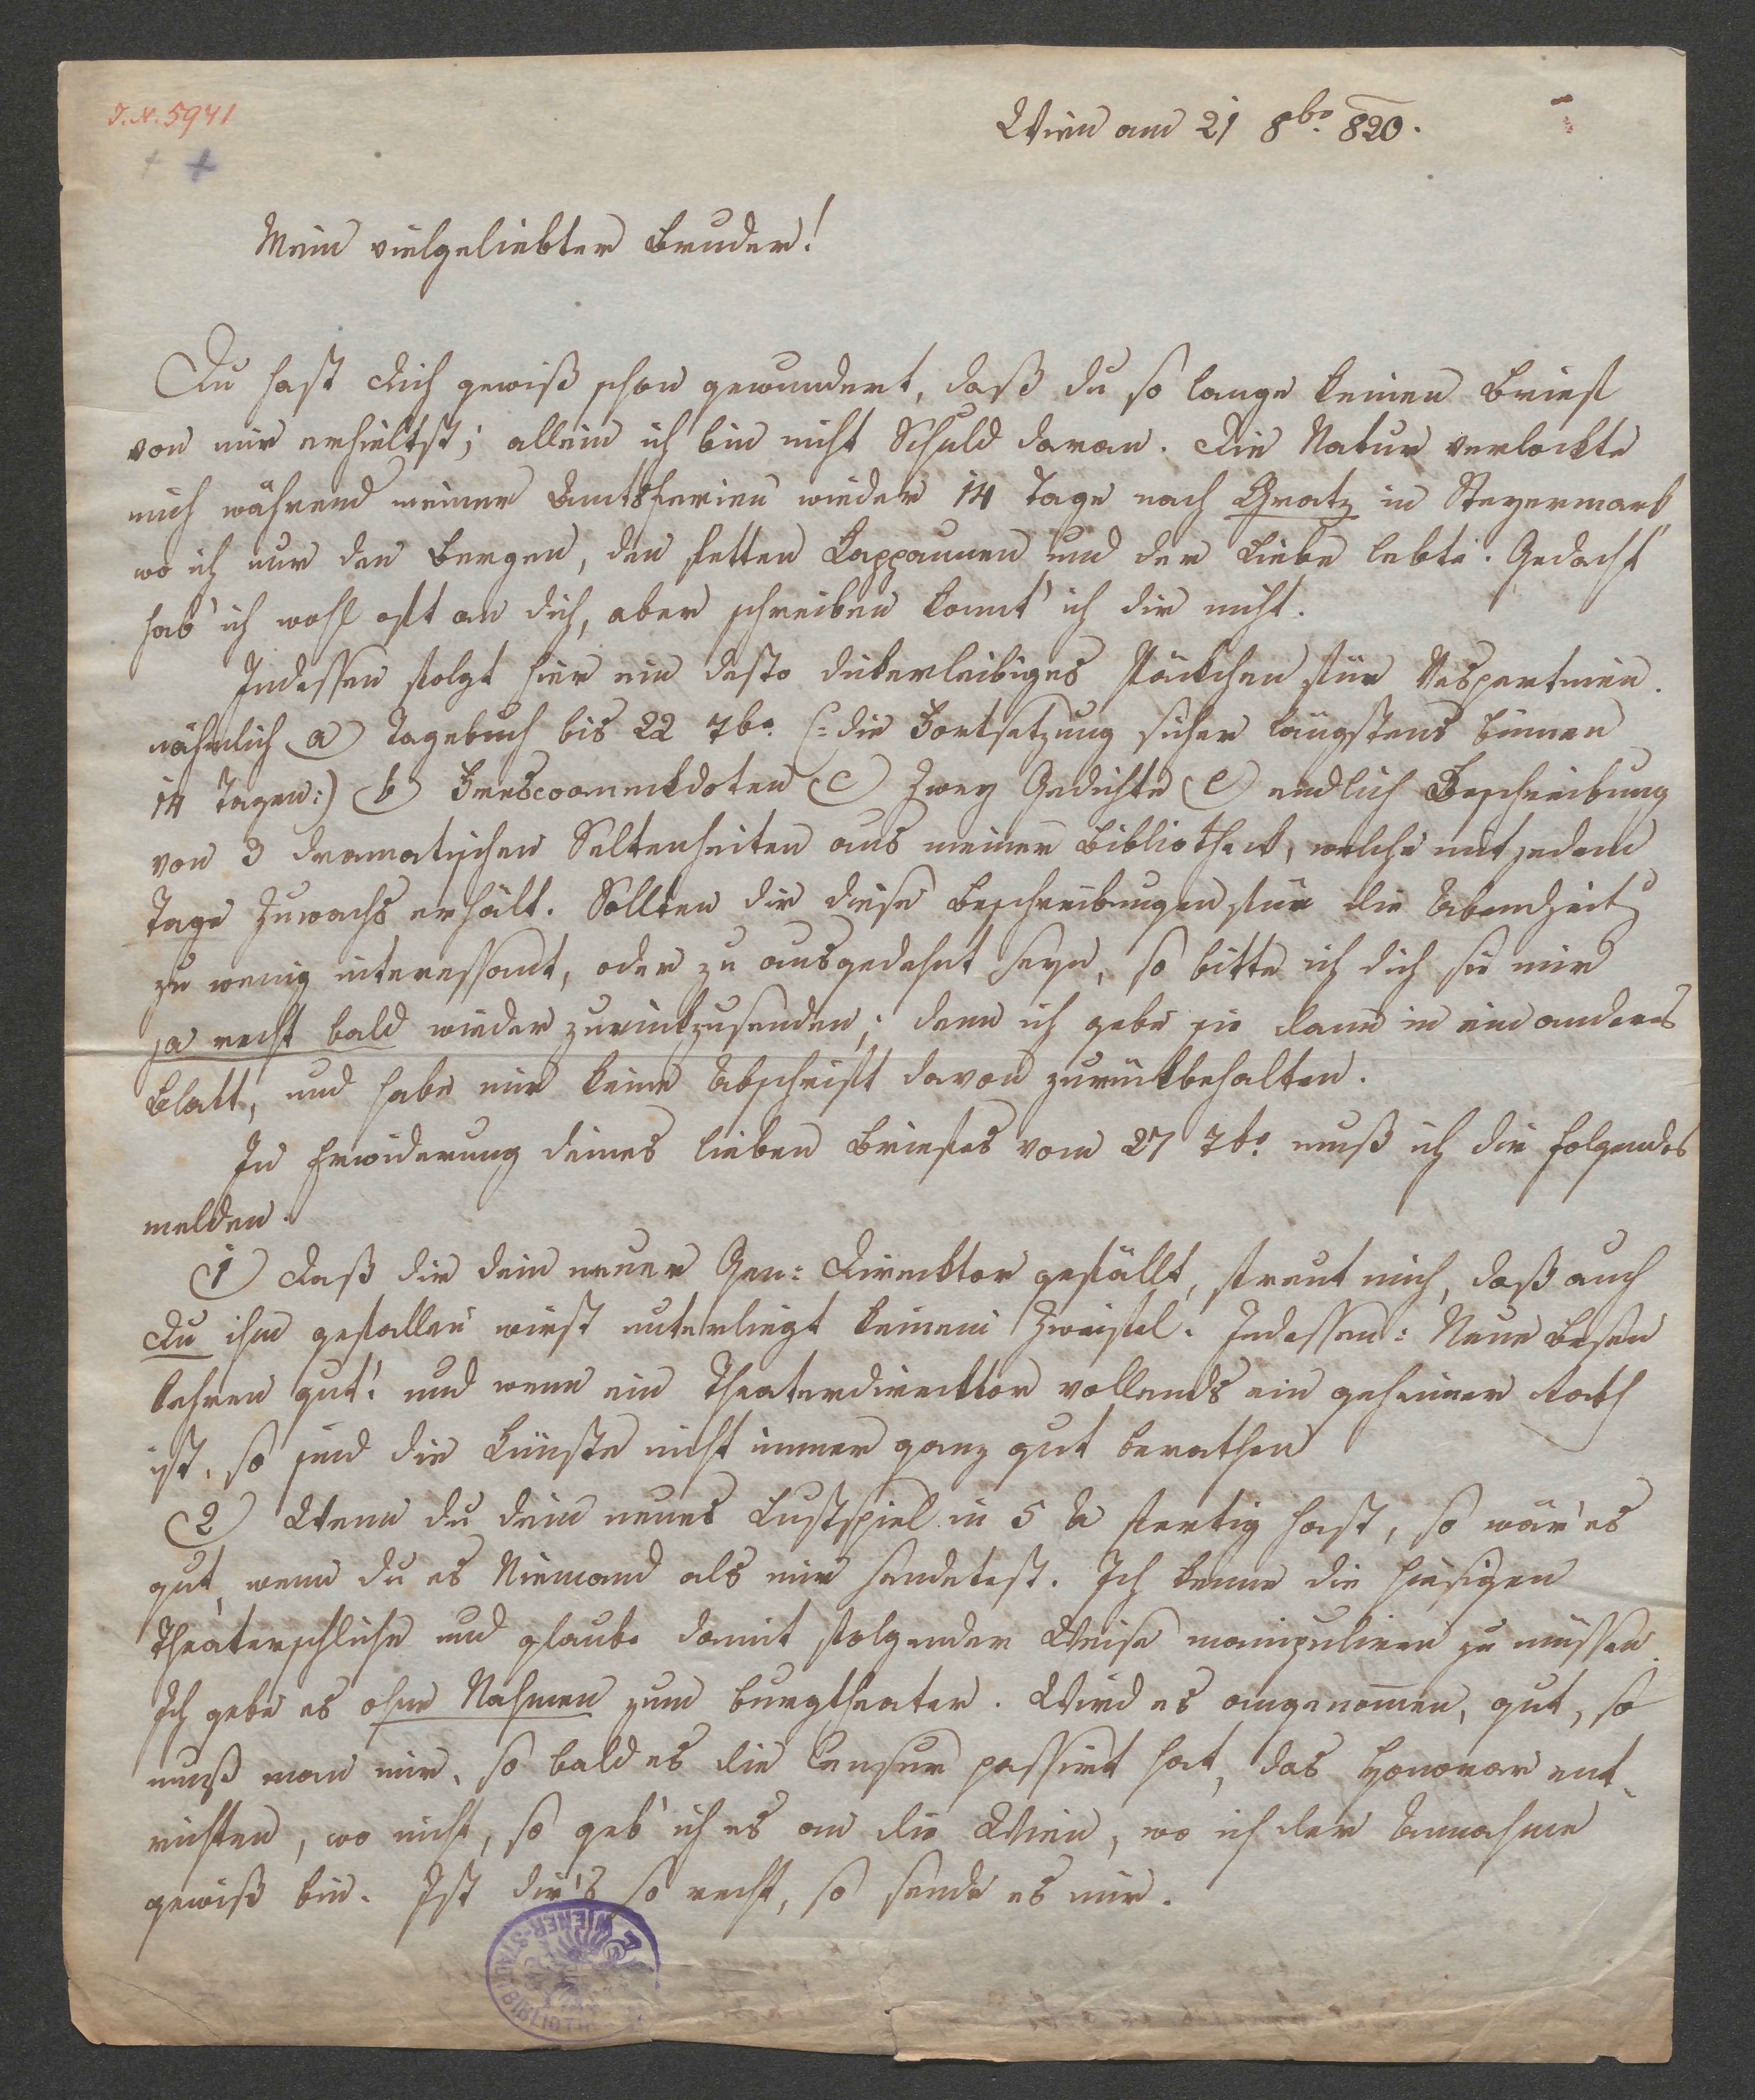 J.N. 5941
Wien am 21 8br. 820.
Mein vielgeliebter Bruder!
Du hast dich gewiß schon gewundert, daß du so lange keinen Brief
von mir erhieltst; allein ich bin nicht Schuld daran. Die Natur verlockte
mich während meiner Amtsferien wieder 14 Tage nach Gratz in Steyermark
wo ich nur den Bergen, den fetten Kappaunen und der Liebe lebte. Gedacht
hab' ich wohl oft an dich, aber schreiben konnt' ich dir nicht.
Indessen folgt hier ein desto dickerleibiges Päckchen für Vespertinen.
nähmlich a) Tagebuch bis 22 7br. (: die Fortsetzung sicher längstens binnen
14 Tagen:) b) c) Zwey Gedichte e) endlich Beschreibung
von 3 dramatischen Seltenheiten aus meiner Bibliothek, welche mit jedem
Tage Zuwachs erhält. Sollten dir diese Beschreibungen für die Abendzeitg
zu wenig interessant, oder zu ausgedehnt seyn, so bitte ich dich sie mir
ja recht bald wieder zurückzusenden; denn ich gebe sie dann in ein anderes
Blatt, und habe mir keine Abschrift davon zurückbehalten.
In Erwiderung deines lieben Briefes vom 27 7br. muß ich dir folgendes
melden.
1) Daß dir dein neuer Gen: Direcktor gefällt, freut mich, daß auch
Du ihm gefallen wirst unterliegt keinem Zweifel. Indessen: Neue Besen
kehren gut! und wenn ein Theaterdirecktor vollends ein geheimer Rath
ist, so sind die Künste nicht immer ganz gut berathen
2) Wenn du dein neues Lustspiel in 5 A fertig hast, so wär' es
gut, wenn du es Niemand als mir sendetest. Ich kenne die hiesigen
Theaterschliche und glaube damit folgender Weise manipuliren zu müssen.
Ich gebe es ohne Nahmen zum Burgtheater. Wird es angenom̄en, gut, so
muß man mir, so bald es die Censur passirt hat, das Honorar ent-
richten, wo nicht, so geb' ich es an die Wien, wo ich der Annahme
gewiß bin. Ist dir's so recht, so sende es mir.
WIENER-STADT BIBLIOTH